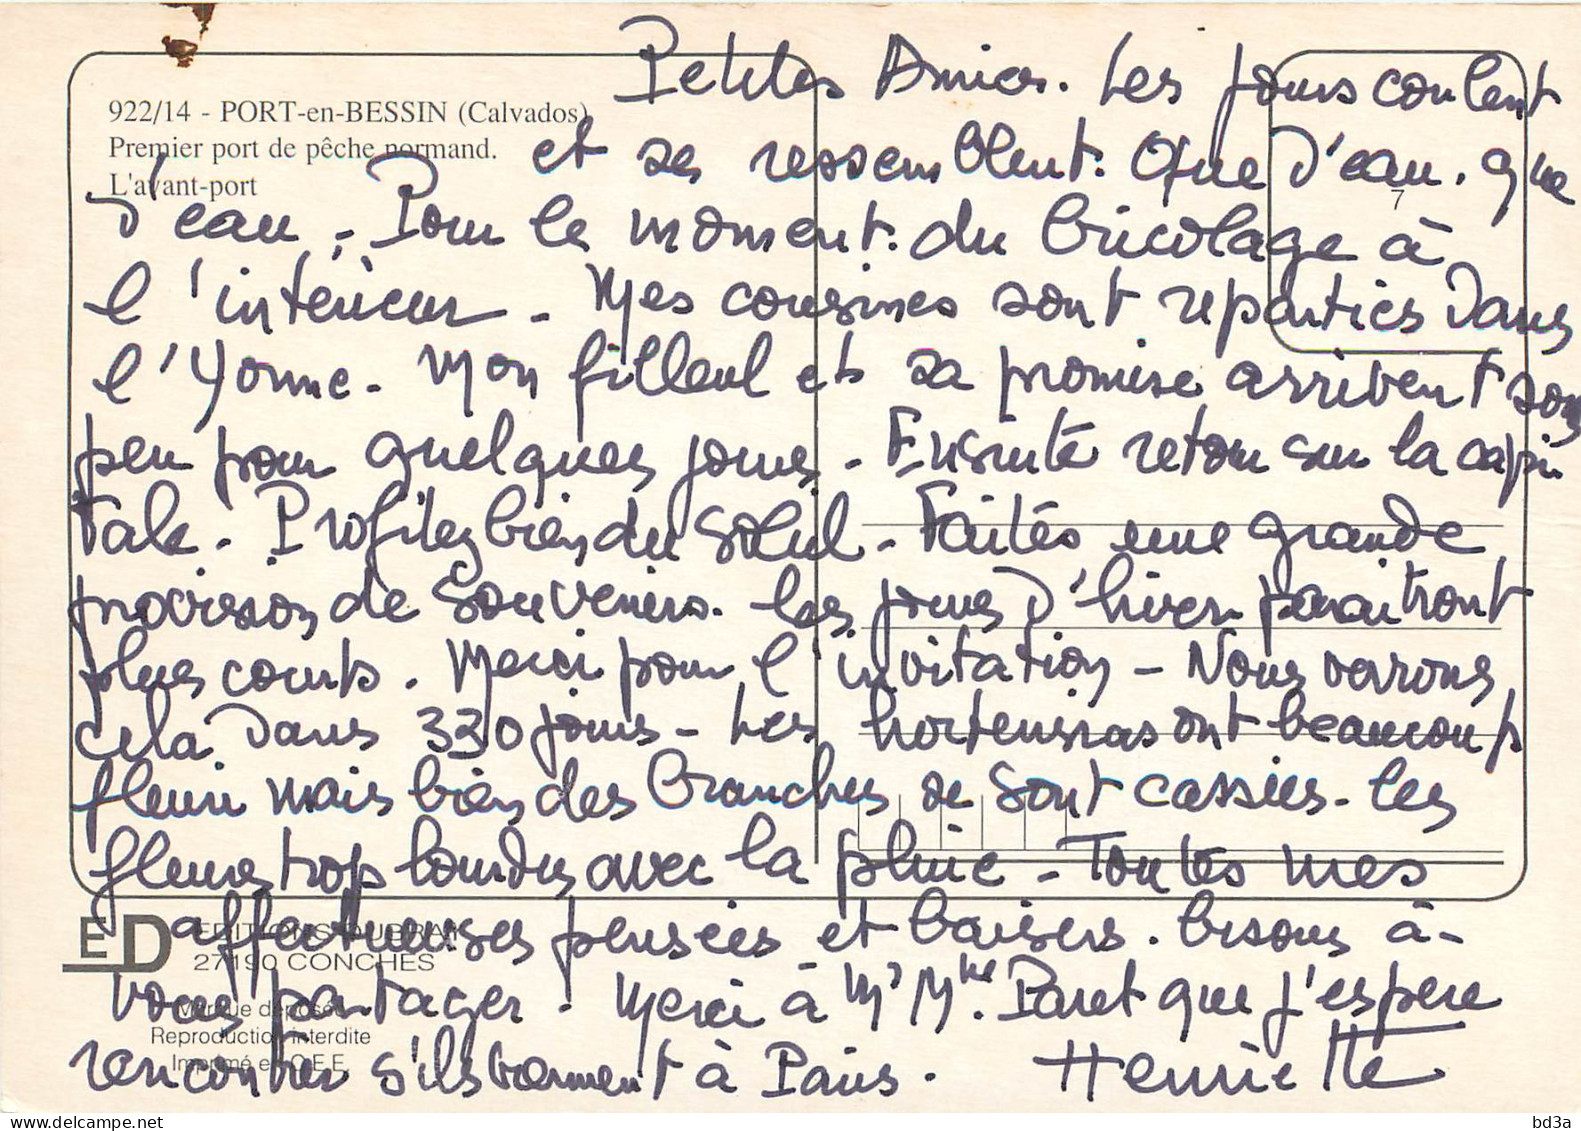 922/14 - PORT-en-BESSIN (Calvados)
Premier port de pêche normand.
L'avant-port
7
Petites Amies. Les jours coulent
et se ressemblent. Que d'eau. que
d'eau. Pour le moment. du bricolage à
l'intérieur - Mes cousines sont reparties dans
l'Yonne - Mon filleul et sa promise arrivent sous
peu pour quelques jours - Ensuite retour sur la capi
tale - Profitez bien du Soleil - Faites une grande
provision de Souvenirs. les jours d'hiver paraitront
plus courts. Merci pour l'invitation - Nous verrons
cela dans 330 jours - Les hortensias ont beaucoup
fleuri mais bien des branches se sont cassées - les
fleurs trop lourdes avec la pluie - Toutes mes
affectueuses pensées et baisers. bisous à -
vous partager. Merci à Mr Mme. Paret que j'espère
rencontrer s'ils viennent à Paris. Henriette
ED
EDITIONS DUBRAY
27190 CONCHES
Marque déposée
Reproduction interdite
Imprimé en C.E.E.
www.delcampe.net
bd3a